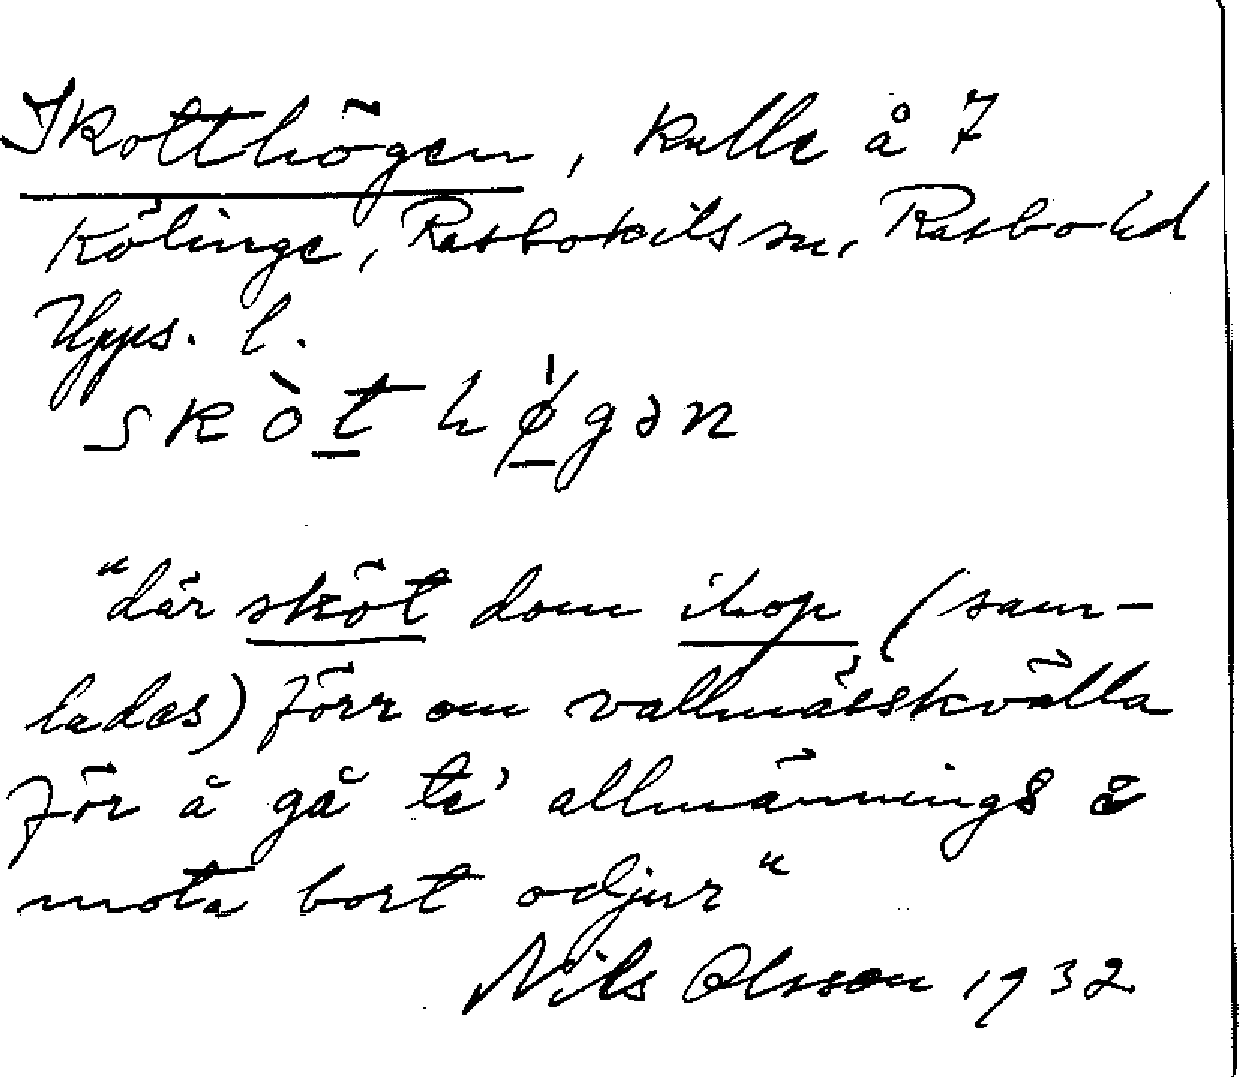 Skotthögen, kulle å 7
Kölinge, Rasbokils sn, Rasbo hd
Upps. l.
skòt hø̀gən
"där sköt dom ihop (sam-
lades) förr om vallmässkvälla
för å gå te' allmännings å
mota bort odjur"
Nils Olsson 1932